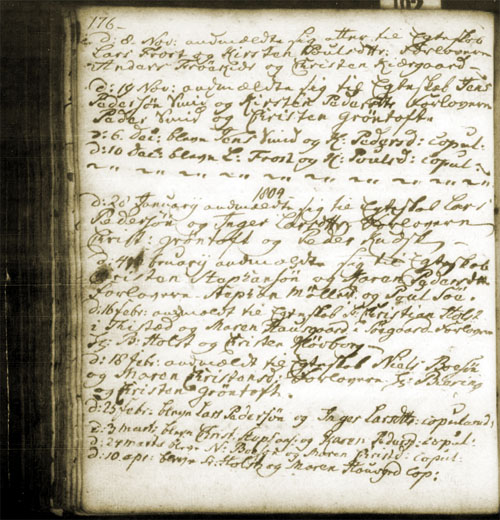 176.
d: 8. Nov: anmældte sig atter til Egteskab
Lars Frost og Kirsten Poulsdttr: Forlovere
Anders og Christen Kiergaard
d: 19 Nov: anmældte sig til Egteskab Jens
Pedersøn Smid og Kirsten Pedersdttr Forlovere
Peder Smid og Christen Grøntoft
d: 6. Dec: blev Jens Smid og K: Pedersd: copul:
d: 10 Dec: blev L: Frost og K: Poulsd: copul:
1809
d: 20 January anmældte sig til Egteskab Lars
Pedersøn og Inger Larsdttr, Forlovere
Christ: Grøntoft og Peder
d: 4 February anmældte sig til Egteskab
Christen Stephansøn og Maren Pedersdttr
Forlovere Stephan Møller og Poul
d: 16 febr: anmeldt til Egteskab Hr Christian Holst
i Thisted og Maren Hausgaard i Forlovere
Hr B: Holst og Christen
d: 18 febr: anmældt til Egteskab Niels
og Maren Christensd: Forlovere
og Christen Grøntoft.
d: 25 febr: blev Lars Pedersøn og Inger Larsdttr: copulered
d: 3 marti: blev Christ: Stephans: og Maren Pedersd: copul:
d: 24 marti blev N: og Maren Christd: copul:
d: 10 apr: blev Hr Holst og Maren Hausgrd cop: